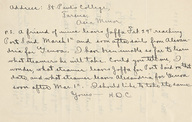 Address: St Paul's College,
Tarsus,
Asia Minor.
P.S. A friend of mine leaves Jaffa Feb 28th reaching
Port Said March 1st and soon after sails from Alexan-
dria for Genoa. I have been unable so far to learn
what steamer he will take. Could you tell me, I
wonder, what steamer leaves Jaffa for Port Said on that
date and what steamer leaves Alexandria for Genoa
soon after Mar. 1st. I should like to take the same.
Yours — H.D.C.